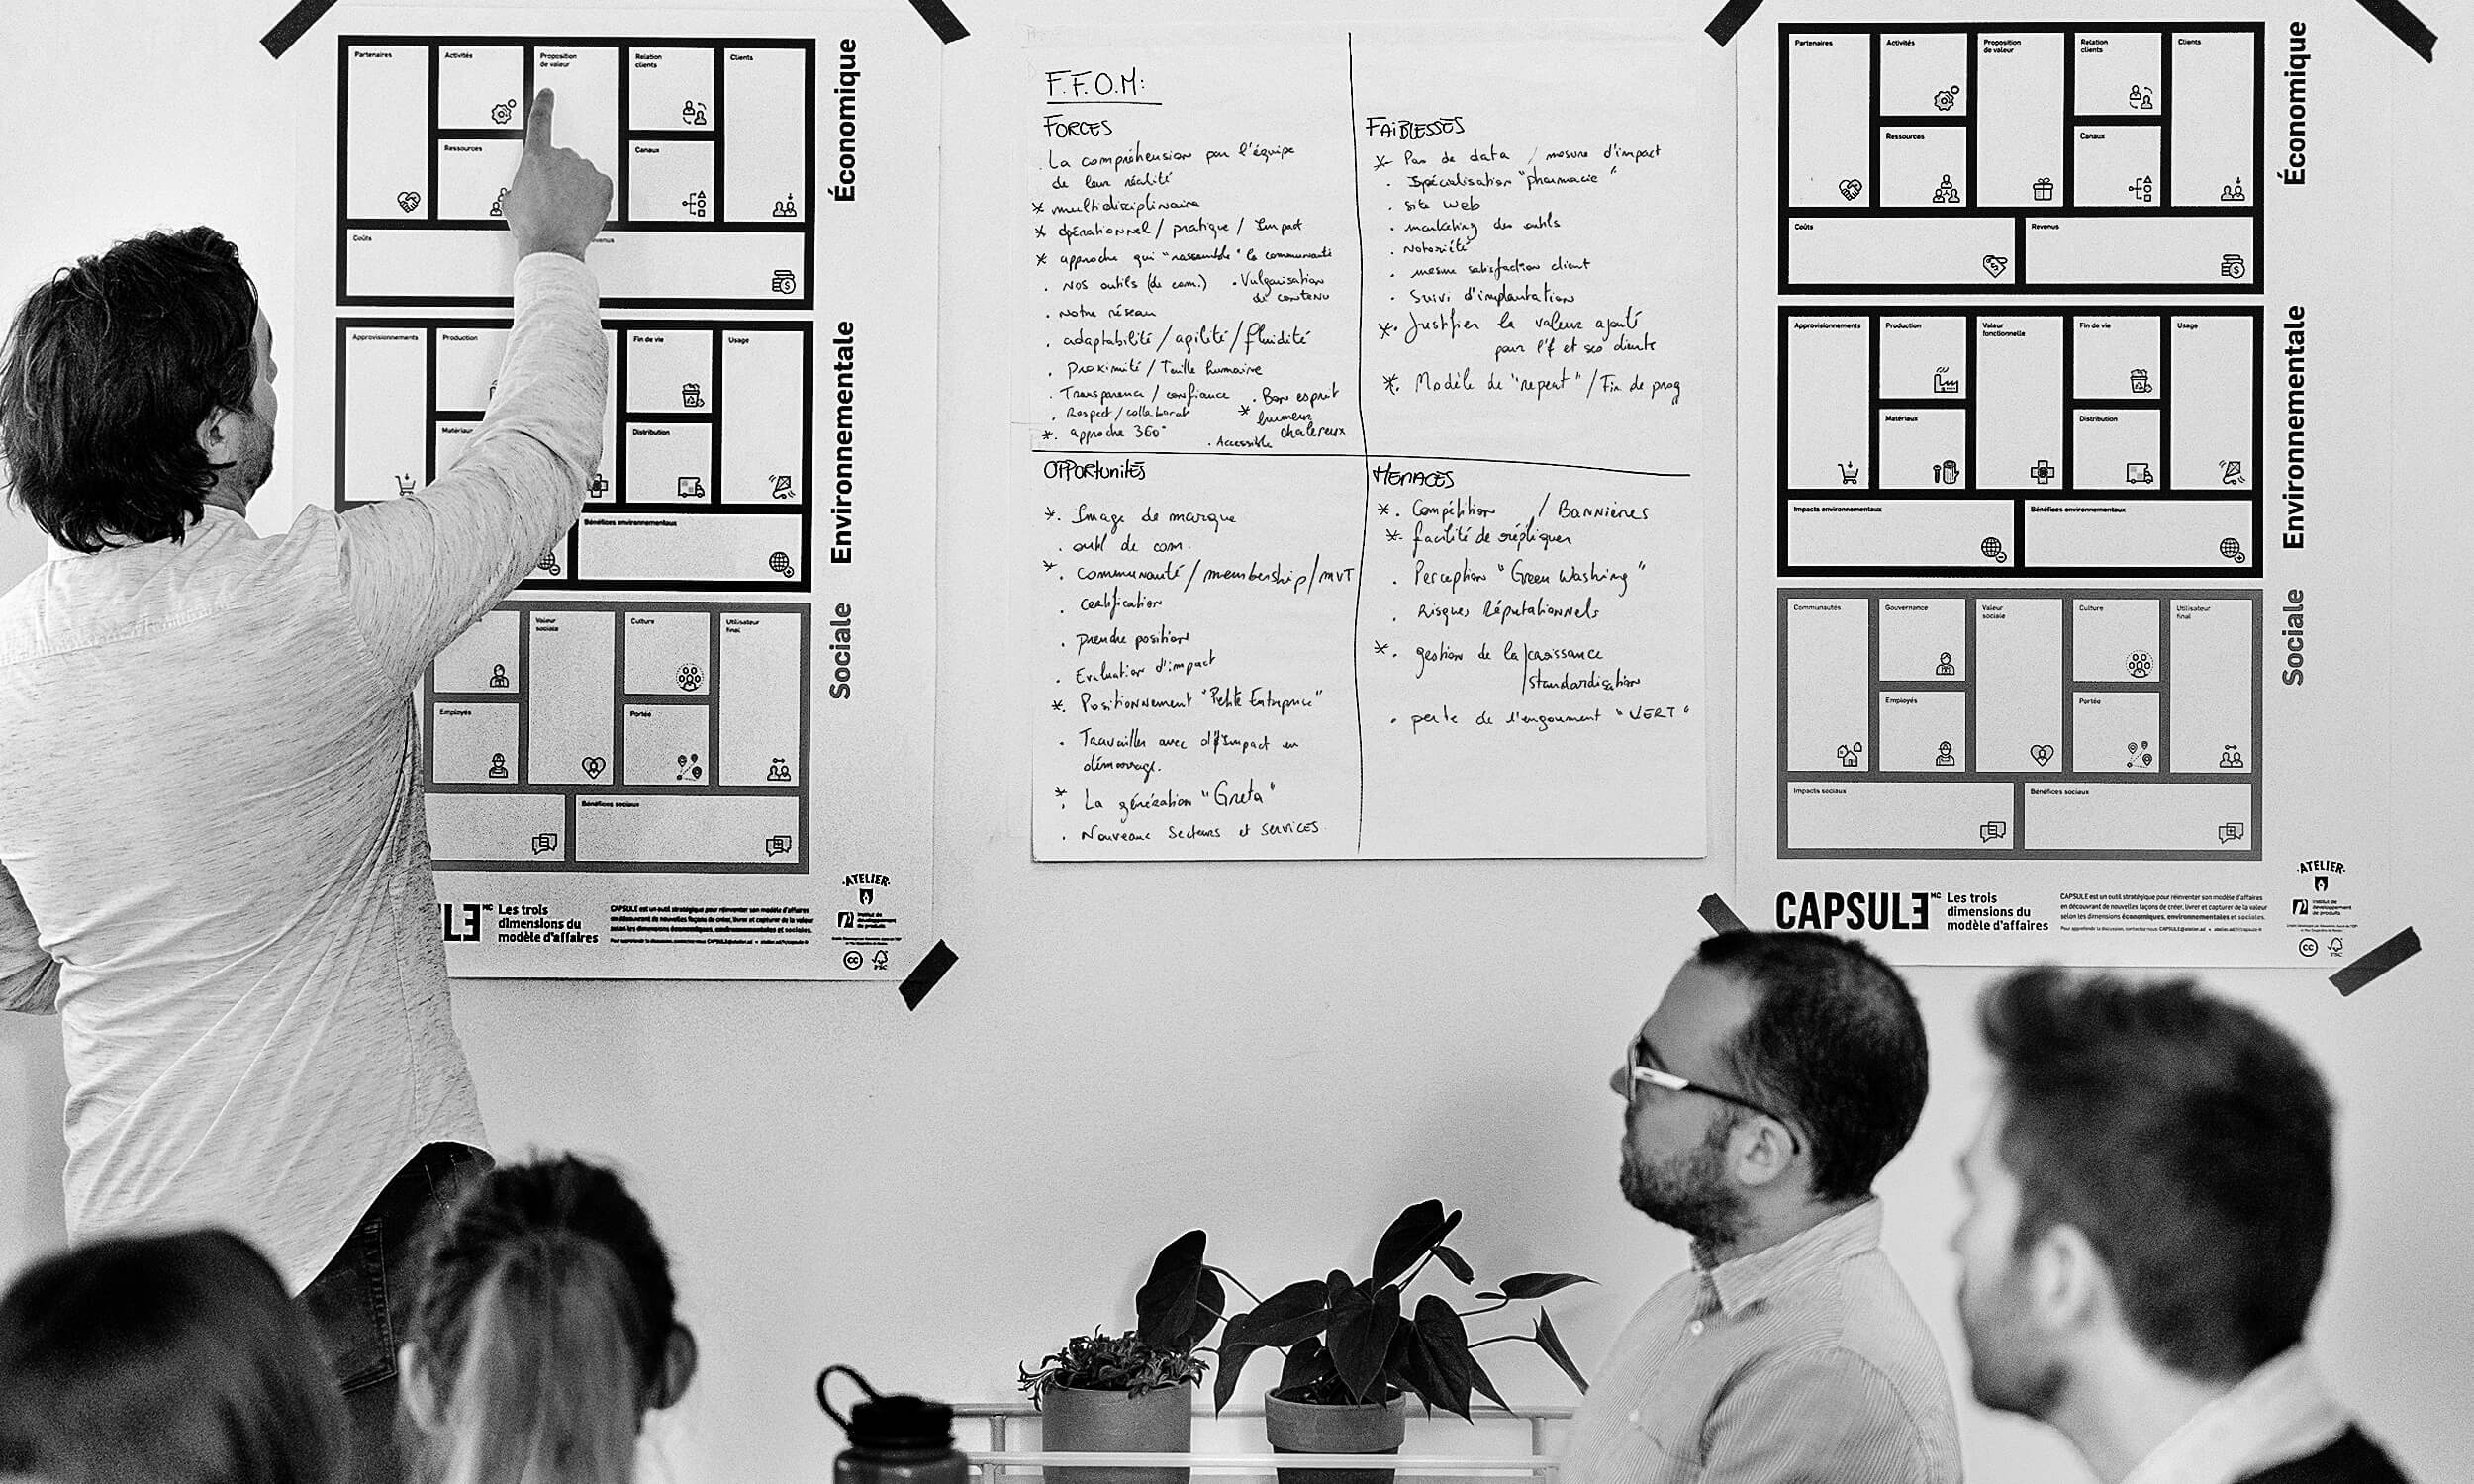 Partenaires
Activités
Proposition
de valeur
Relation
clients
Clients
Ressources
Canaux
Coûts
Économique
Approvisionnements
Production
Fin de vie
Usage
Matériaux
Distribution
Bénéfices environnementaux
Environnementale
Valeur
sociale
Culture
Utilisateur
final
Employés
Portée
Bénéfices sociaux
Sociale
Les trois
dimensions du
modèle d'affaires
MC
CAPSULE est un outil stratégique pour réinventer son modèle d'affaires
en découvrant de nouvelles façons de créer, livrer et capturer de la valeur
selon les dimensions économiques, environnementales et sociales.
·ATELIER·
Institut de
développement
de produits
cc
FSC
F.F.O.M:
FORCES
. La compréhension par l'équipe
de leur réalité
* multidisciplinaire
* opérationnel / pratique / Impact
* approche qui "rassemble" la communauté
. Nos outils (de com.) . Vulgarisation
de contenu
. Notre réseau
. adaptabilité / agilité / fluidité
. Proximité / Taille humaine
. Transparence / confiance . Bon esprit
. Respect / collaborat * humeur
*. approche 360° chaleureux
. Accessible
FAIBLESSES
*- Pas de data / mesure d'impact
. Spécialisation "pharmacie"
. site web
. marketing des outils
. Notoriété
. mesure satisfaction client
. Suivi d'implantation
*. Justifier la valeur ajouté
pour l'É et ses clients
*. Modèle de "repeat" / Fin de prog
OPPORTUNITÉS
*. Image de marque
. outil de com.
*. Communauté / membership / mvt
. certification
. prendre position
. Evaluation d'impact
*. Positionnement "Petite Entreprise"
. Travailler avec d'impact en
démarrage.
*. La génération "Greta"
. Nouveaux Secteurs et SERVICES
MENACES
*. Compétition / Bannières
*- facilité de répliquer
. Perception "Green Washing"
. Risques Réputationnels
*. gestion de la croissance
/standardisation
. perte de l'engoument "VERT"
Partenaires
Activités
Proposition
de valeur
Relation
clients
Clients
Ressources
Canaux
Coûts
Revenus
Économique
Approvisionnements
Production
Valeur
fonctionnelle
Fin de vie
Usage
Matériaux
Distribution
Impacts environnementaux
Bénéfices environnementaux
Environnementale
Communautés
Gouvernance
Valeur
sociale
Culture
Utilisateur
final
Employés
Portée
Impacts sociaux
Bénéfices sociaux
Sociale
CAPSULE MC
Les trois
dimensions du
modèle d'affaires
CAPSULE est un outil stratégique pour réinventer son modèle d'affaires
en découvrant de nouvelles façons de créer, livrer et capturer de la valeur
selon les dimensions économiques, environnementales et sociales.
·ATELIER·
Institut de
développement
de produits
cc
FSC